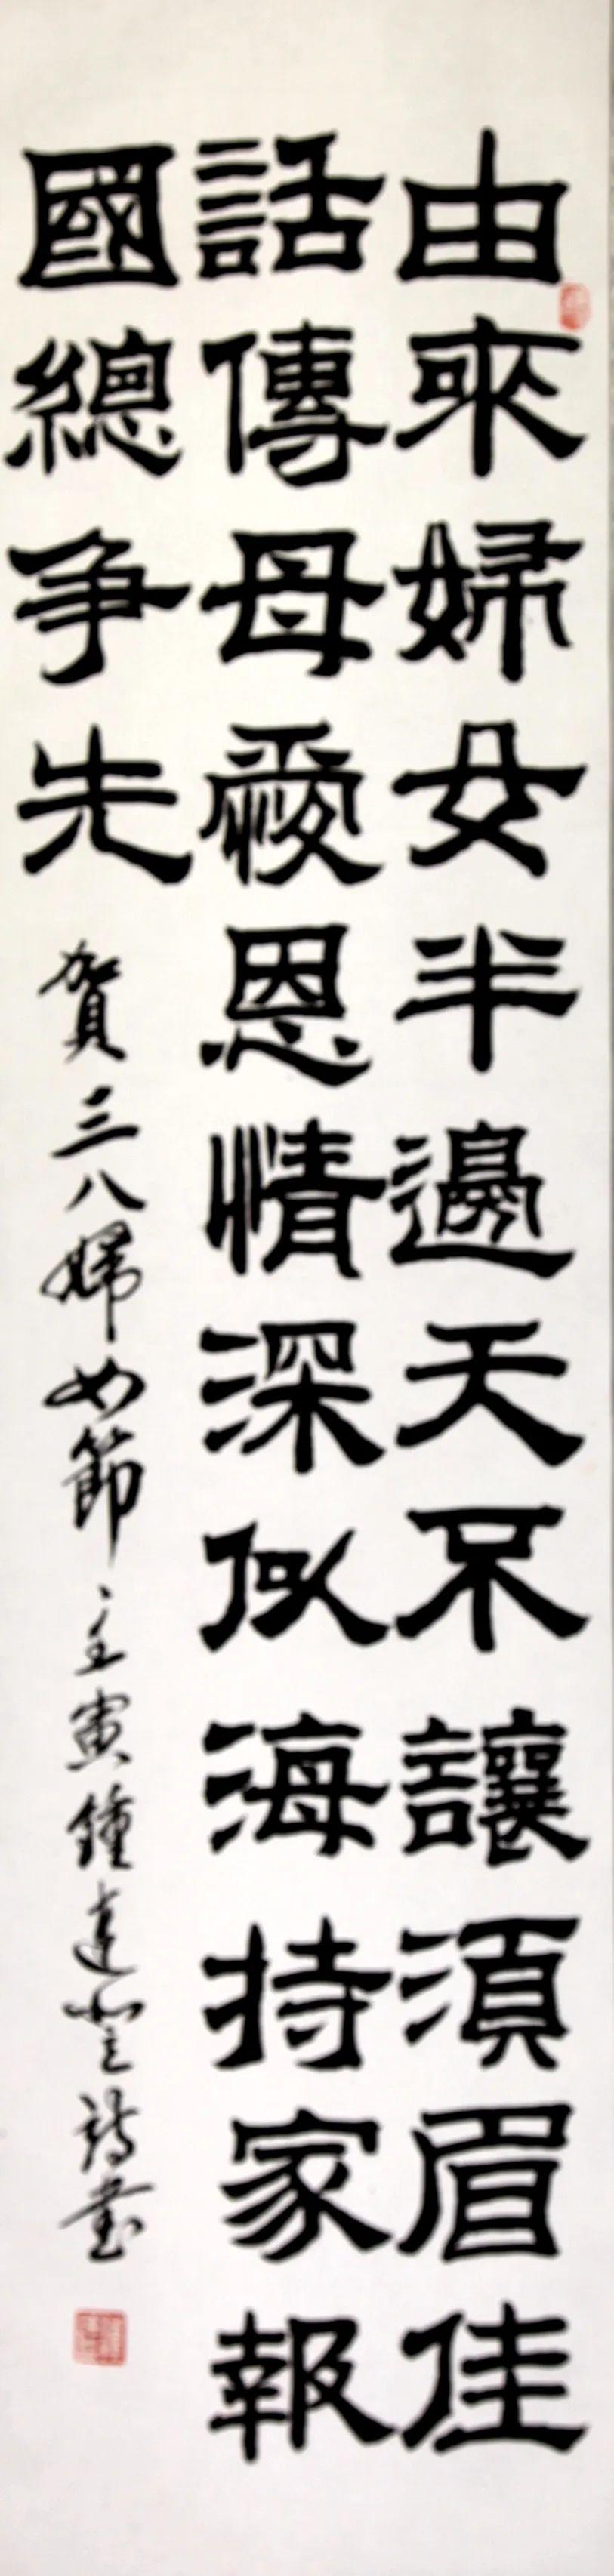 由來婦女半邊天不讓須眉佳
話傳母愛恩情深似海持家報
國總爭先
賀三八婦女節壬寅鍾達
詩書